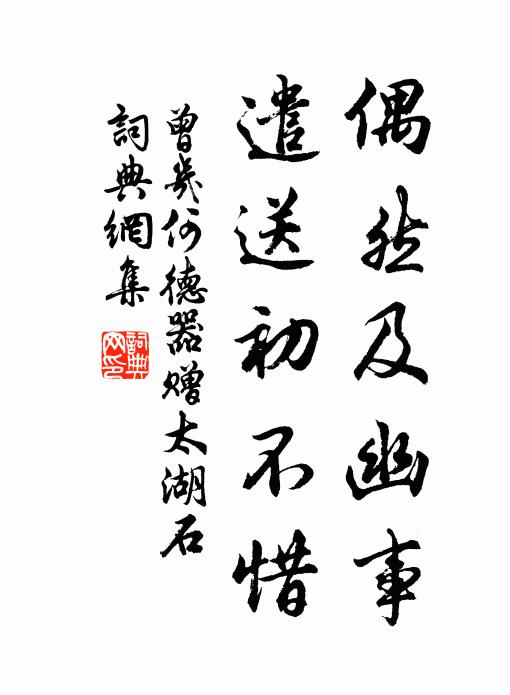 偶然及幽事
遣送初不惜
曾幾何德器贈太湖石
詞典網集
詞典網印